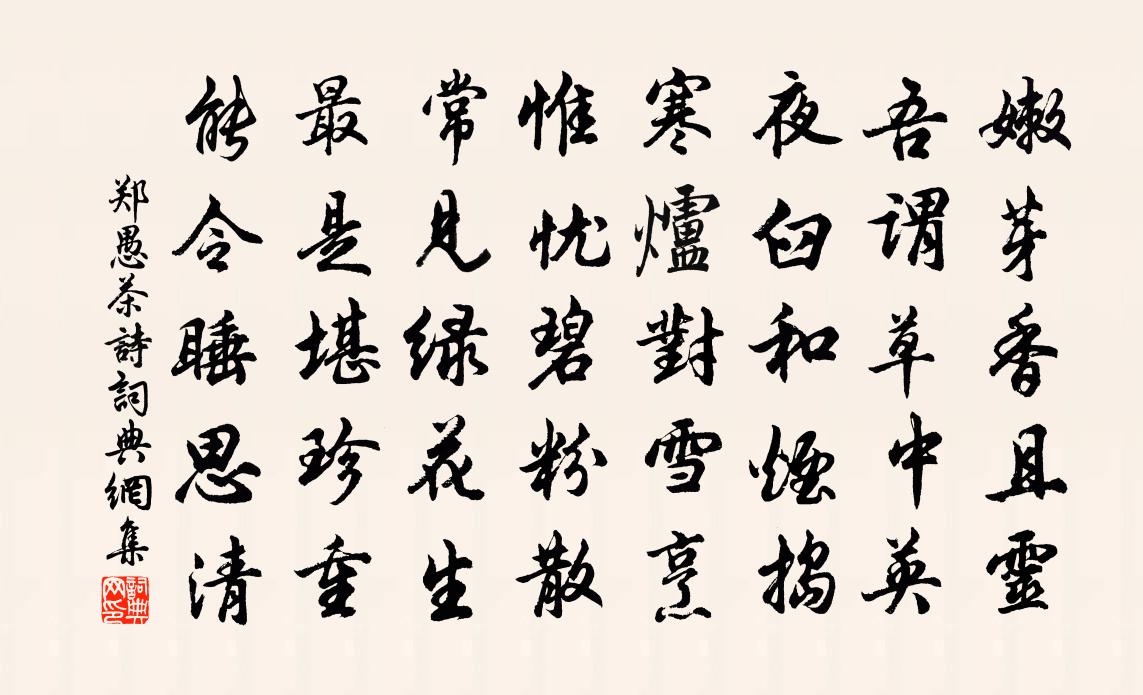 嫩芽香且靈
吾谓草中英
夜臼和煙搗
寒爐對雪烹
惟忧碧粉散
常見绿花生
最是堪珍重
能令睡思清
郑愚茶詩詞典網集